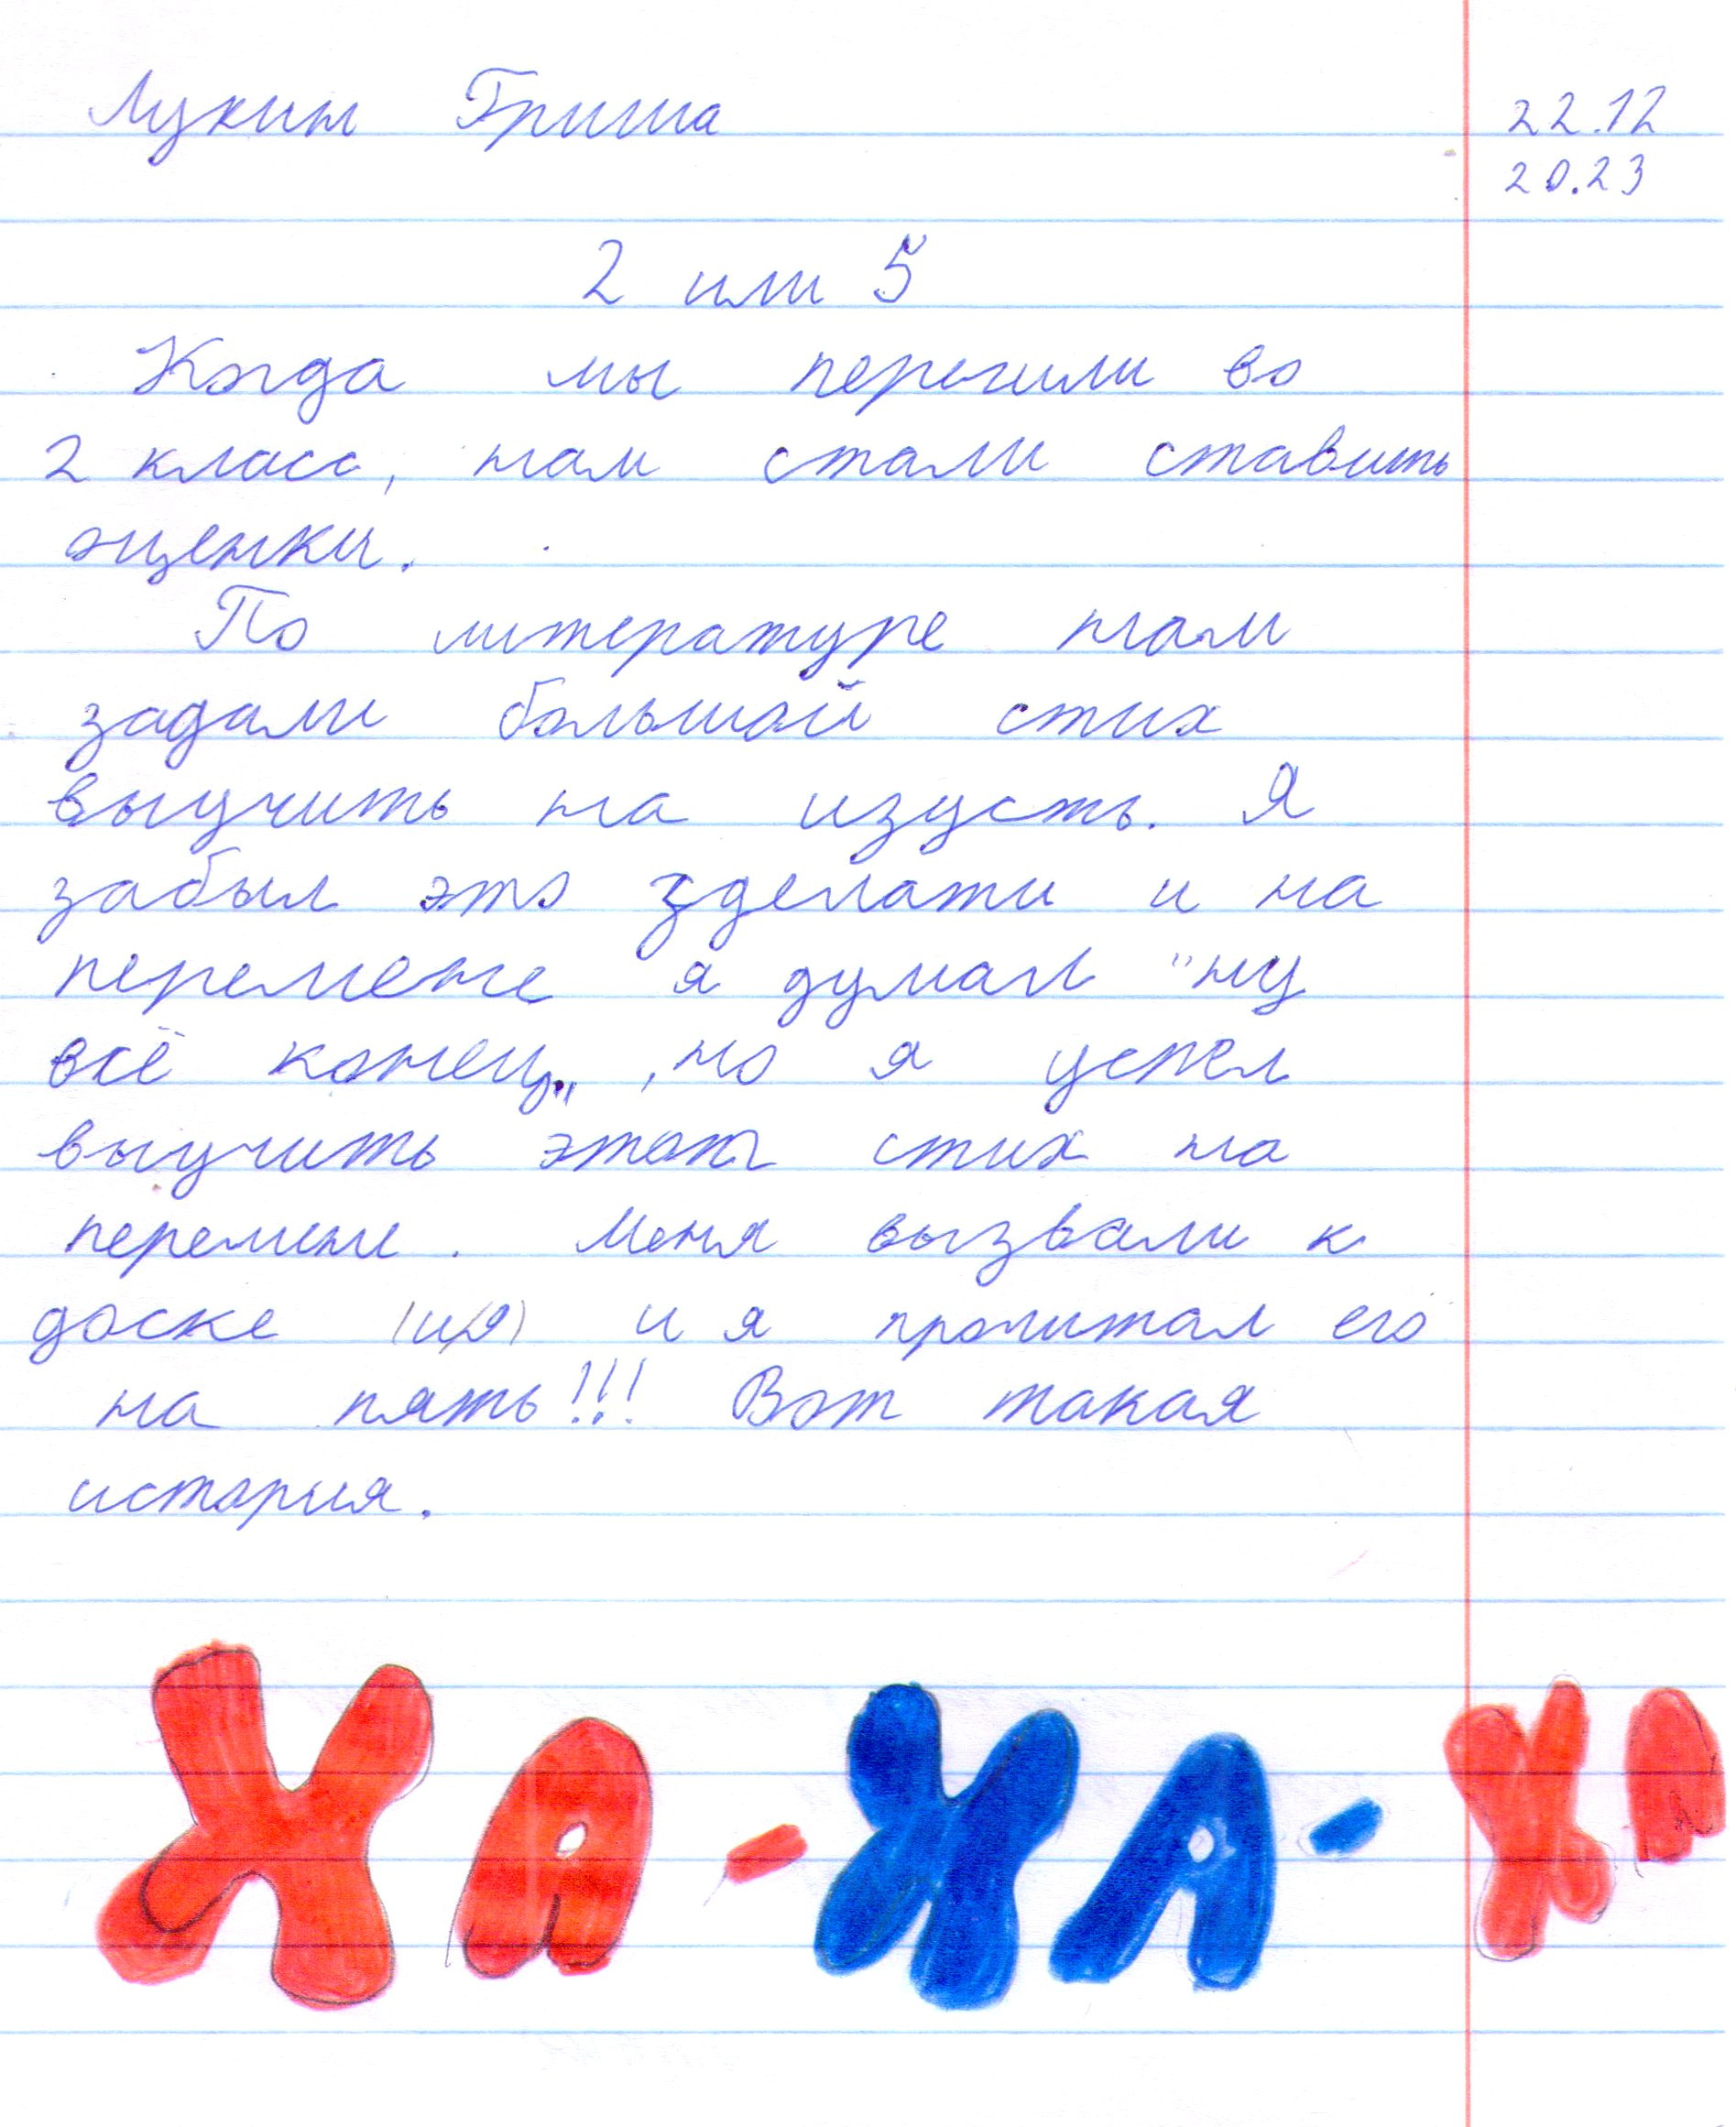 Лукин Гриша
22.12
20.23
2 или 5
Когда мы перешли во
2 класс, нам стали ставить
оценки.
По литературе нам
задали большой стих
выучить на изусть. Я
забыл это зделати и на
перемене я думал "ну
всё конец„, но я успел
выучить этот стих на
перемене. Меня вызвали к
доске (и я) и я прочитал его
на пять!!! Вот такая
история.
ХА-ХА-ХА